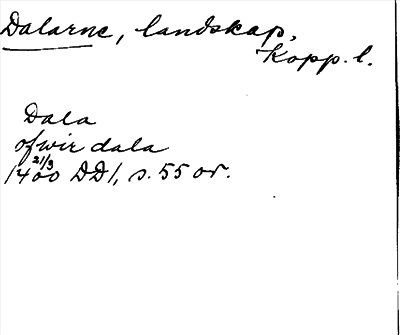 Dalarne, landskap,
Kopp. l.
Dala
ofwir dala
21/3
1400 DD1, s. 55 or.